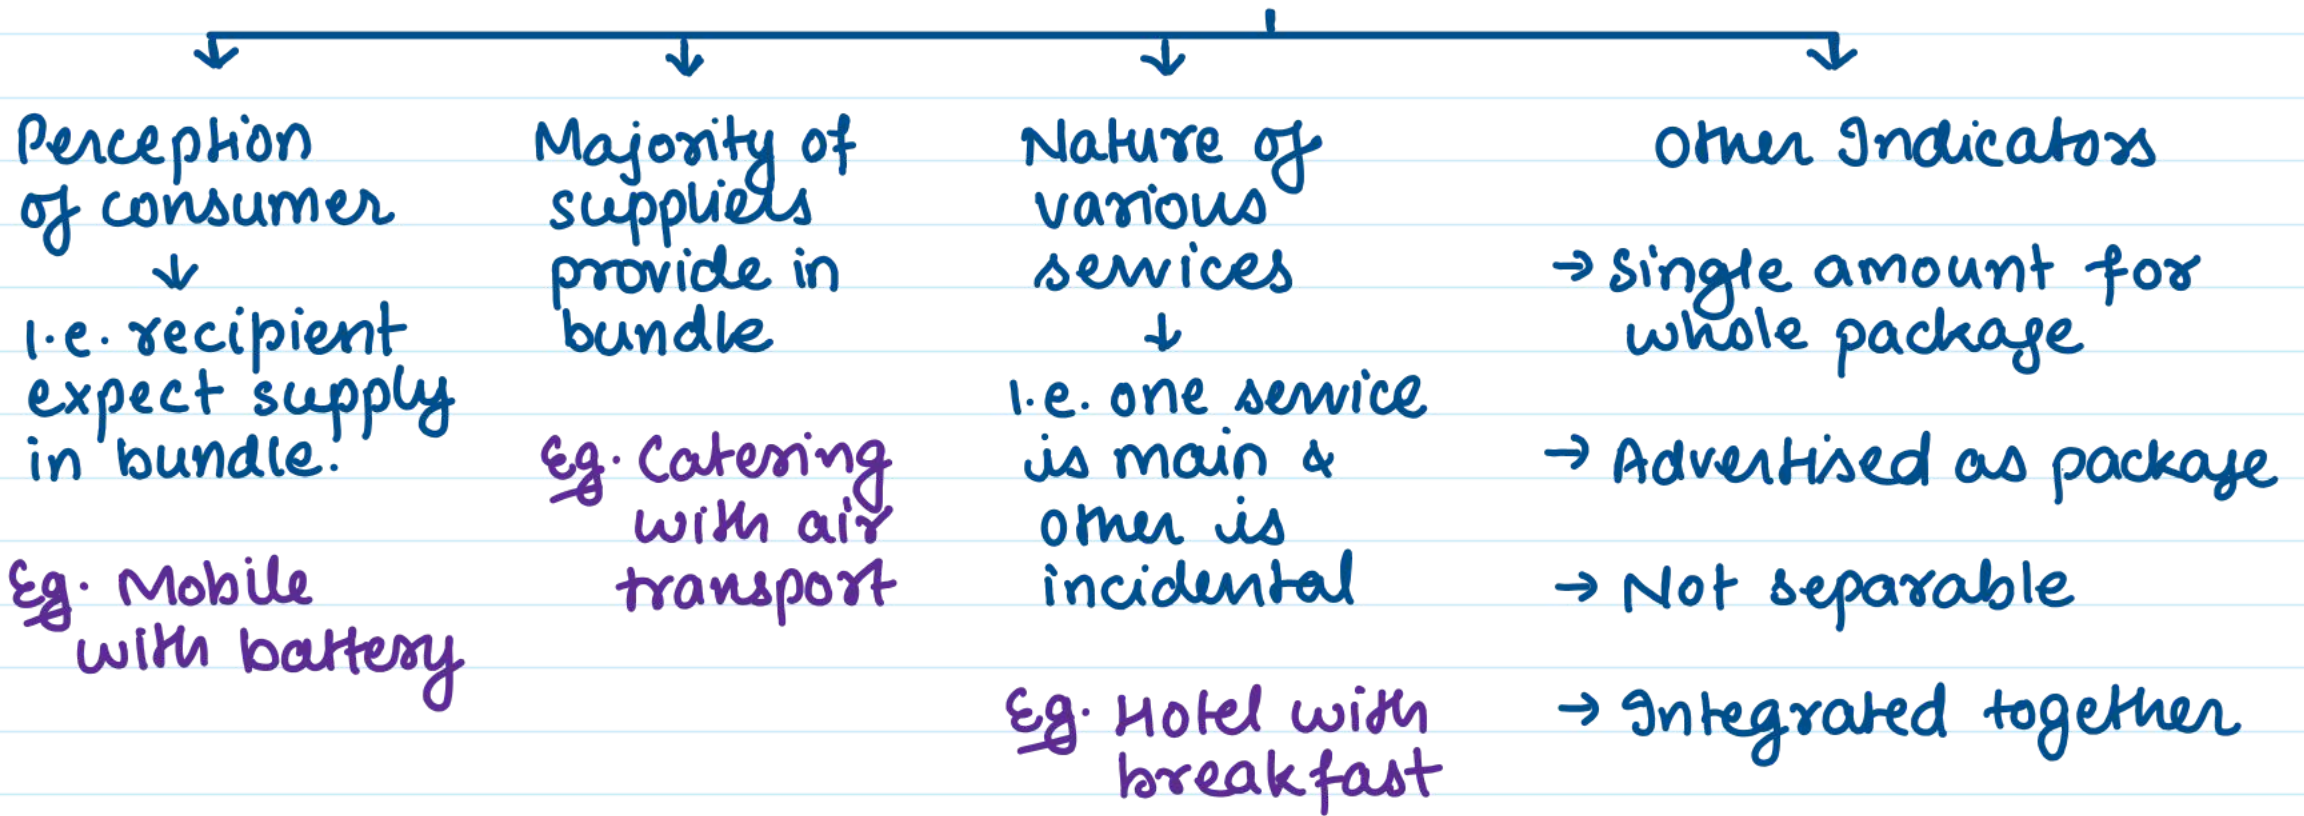 Perception
of consumer
↓
i.e. recipient
expect supply
in bundle.
Eg. Mobile
with battery
Majority of
suppliers
provide in
bundle
Eg. Catering
with air
transport
Nature of
various
services
↓
i.e. one service
is main &
other is
incidental
Eg. Hotel with
breakfast
Other Indicators
→ Single amount for
whole package
→ Advertised as package
→ Not separable
→ Integrated together